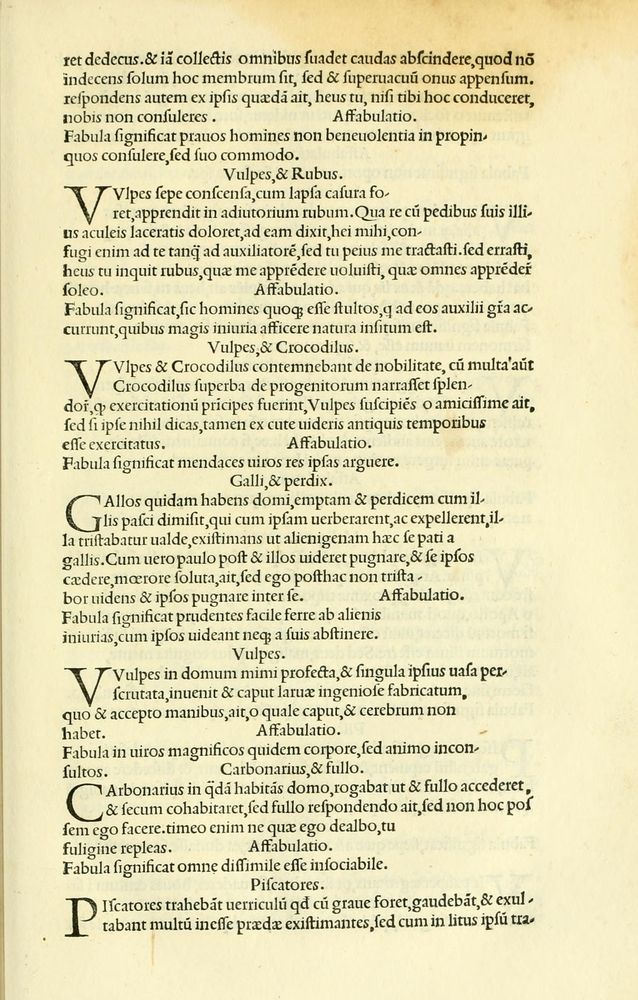 ret dedecus.& iã collectis omnibus suadet caudas abscindere,quod nõ
indecens solum hoc membrum sit, sed & superuacuũ onus appensum.
respondens autem ex ipsis quædã ait, heus tu, nisi tibi hoc conduceret,
nobis non consuleres . Affabulatio.
Fabula significat prauos homines non beneuolentia in propin-
quos consulere,sed suo commodo.
Vulpes,& Rubus.
VVlpes sepe conscensa,cum lapsa casura fo-
ret,apprendit in adiutorium rubum.Qua re cũ pedibus suis illi-
us aculeis laceratis doloret,ad eam dixit,hei mihi,con-
fugi enim ad te tanq̃ ad auxiliatorẽ,sed tu peius me tractasti.sed errasti,
heus tu inquit rubus,quæ me apprẽdere uoluisti, quæ omnes apprẽder̃
soleo. Affabulatio.
Fabula significat,sic homines quoq; esse stultos,q ad eos auxilii gr̃a ac-
currunt,quibus magis iniuria afficere natura insitum est.
Vulpes,& Crocodilus.
VVlpes & Crocodilus contemnebant de nobilitate, cũ multa'aũt
Crocodilus superba de progenitorum narrasset splen-
dor̃,ꝙ exercitationũ prĩcipes fuerint,Vulpes suscipiẽs o amicissime ait,
sed si ipse nihil dicas,tamen ex cute uideris antiquis temporibus
esse exercitatus. Affabulatio.
Fabula significat mendaces uiros res ipsas arguere.
Galli,& perdix.
GAllos quidam habens domi,emptam & perdicem cum il-
lis pasci dimisit,qui cum ipsam uerberarent,ac expellerent,il-
la tristabatur ualde,existimans ut alienigenam hæc se pati a
gallis.Cum uero paulo post & illos uideret pugnare,& se ipsos
cædere,mœrore soluta,ait,sed ego posthac non trista -
bor uidens & ipsos pugnare inter se. Affabulatio.
Fabula significat prudentes facile ferre ab alienis
iniurias,cum ipsos uideant neq; a suis abstinere.
Vulpes.
VVulpes in domum mimi profecta,& singula ipsius uasa per-
scrutata,inuenit & caput laruæ ingeniose fabricatum,
quo & accepto manibus,ait,o quale caput,& cerebrum non
habet. Affabulatio.
Fabula in uiros magnificos quidem corpore,sed animo incon-
sultos. Carbonarius,& fullo.
CArbonarius in q̃dã habitãs domo,rogabat ut & fullo accederet,
& secum cohabitaret,sed fullo respondendo ait,sed non hoc pos
sem ego facere.timeo enim ne quæ ego dealbo,tu
fuligine repleas. Affabulatio.
Fabula significat omne dissimile esse insociabile.
Piscatores.
PIscatores trahebãt uerriculũ qd̃ cũ graue foret,gaudebãt,& exul-
tabant multũ inesse prædæ existimantes,sed cum in litus ipsũ tra-